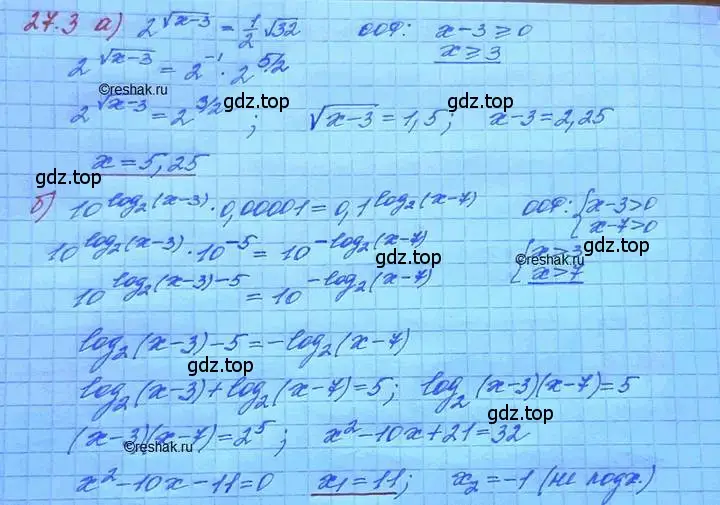 27.3 а) 2^√(x-3) = 1/2 √32 ООФ: x-3≥0
2^√(x-3) = 2^-1 · 2^5/2 x≥3
©reshak.ru
2^√(x-3) = 2^3/2; √(x-3) = 1,5; x-3=2,25
gdz.top gdz.top
x=5,25
gdz.top
б) 10^log₂(x-3) · 0,00001 = 0,1^log₂(x-7) ООФ: { x-3>0
x-7>0
10^log₂(x-3) · 10^-5 = 10^-log₂(x-7) { x>3
gdz.top gdz.top ©reshak.ru
10^log₂(x-3)-5 = 10^-log₂(x-7) x>7
log₂(x-3)-5 = -log₂(x-7)
gdz.top
log₂(x-3)+log₂(x-7)=5; log₂(x-3)(x-7)=5
gdz.top
(x-3)(x-7)=2^5; x²-10x+21=32
©reshak.ru
x²-10x-11=0 x₁=11; x₂=-1 (не подх.)